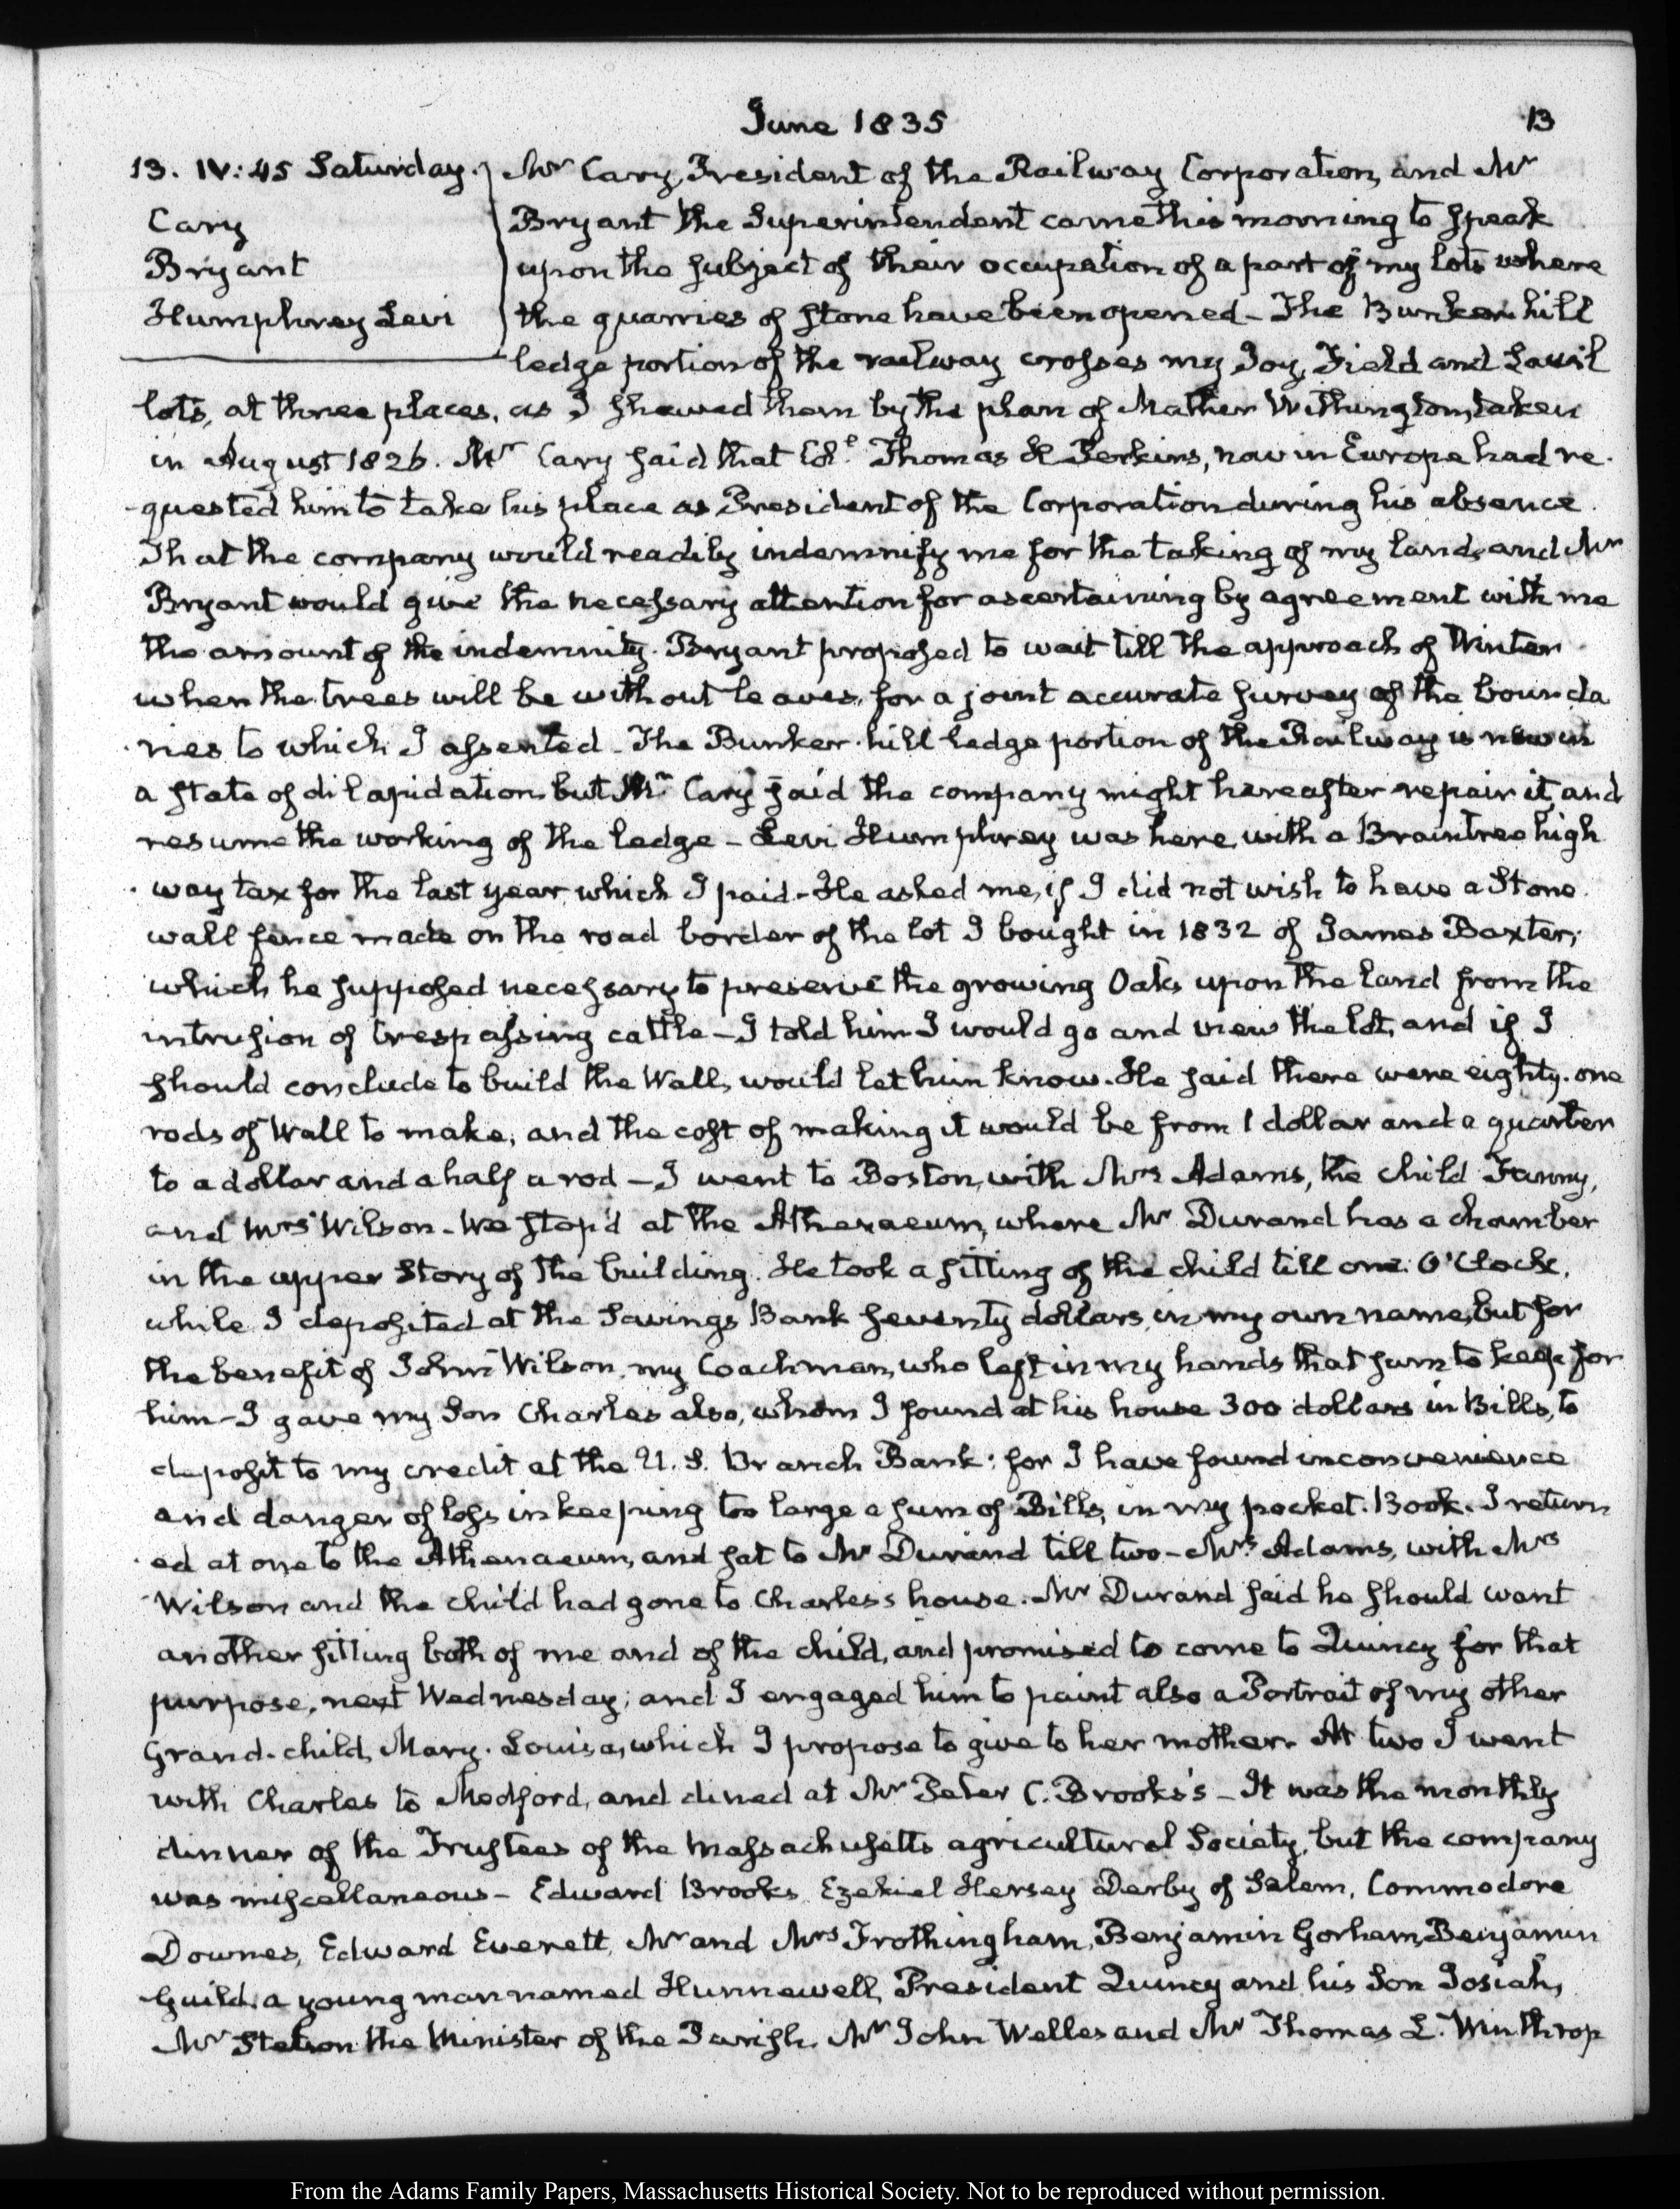 June 1835
13
13. IV:45 Saturday.
Cary
Bryant
Humphrey Levi
Mr Cary, President of the Railway Corporation, and Mr
Bryant the Superintendent came this morning to speak
upon the subject of their occupation of a part of my lots where
the quarries of stone have been opened - The Bunker hill
ledge portion of the railway crosses my Joy, Field and Savil
lots, at three places, as I shewed them by the plan of Mather Withington, taken
in August 1826. Mr Cary said that Coll Thomas H Perkins, now in Europe had re-
-quested him to take his place as President of the Corporation during his absence.
That the company would readily indemnify me for the taking of my land, and Mr
Bryant would give the necessary attention for ascertaining by agreement with me
the amount of the indemnity. Bryant proposed to wait till the approach of Winter
when the trees will be without leaves, for a joint accurate survey of the bounda-
-ries to which I assented - The Bunker-hill ledge portion of the Railway is now in
a state of dilapidation, but Mr Cary said the company might hereafter repair it, and
resume the working of the ledge - Levi Humphrey was here, with a Braintree high-
-way tax for the last year, which I paid - He asked me, if I did not wish to have a Stone
wall fence made on the road border of the lot I bought in 1832 of James Baxter;
which he supposed necessary to preserve the growing Oaks upon the land from the
intrusion of trespassing cattle - I told him I would go and view the lot, and if I
should conclude to build the Wall, would let him know. He said there were eighty-one
rods of Wall to make, and the cost of making it would be from 1 dollar and a quarter
to a dollar and a half a rod - I went to Boston, with Mrs Adams, the child Fanny,
and Mrs Wilson - We stop'd at the Athenaeum, where Mr Durand has a chamber
in the upper Story of the building. He took a sitting of the child till one O'Clock,
while I deposited at the Savings Bank seventy dollars, in my own name, but for
the benefit of John Wilson, my Coachman, who left in my hands that sum to keep for
him - I gave my Son Charles also, whom I found at his house 300 dollars in Bills, to
deposit to my credit at the U. S. Branch Bank: for I have found inconvenience
and danger of loss in keeping too large a sum of Bills, in my pocket-Book. I return-
-ed at one to the Athenaeum, and sat to Mr Durand till two - Mrs Adams, with Mrs
Wilson and the child had gone to Charles's house. Mr Durand said he should want
another sitting both of me and of the child, and promised to come to Quincy for that
purpose, next Wednesday; and I engaged him to paint also a Portrait of my other
Grand-child, Mary-Louisa, which I propose to give to her mother. At two I went
with Charles to Medford, and dined at Mr Peter C. Brooks's - It was the monthly
dinner of the Trustees of the Massachusetts agricultural Society, but the company
was miscellaneous - Edward Brooks, Ezekiel Hersey Derby of Salem, Commodore
Downes, Edward Everett, Mr and Mrs Frothingham, Benjamin Gorham, Benjamin
Guild, a young man named Hunnewell, President Quincy and his Son Josiah,
Mr Stetson the Minister of the Parish, Mr John Welles and Mr Thomas L. Winthrop
From the Adams Family Papers, Massachusetts Historical Society. Not to be reproduced without permission.